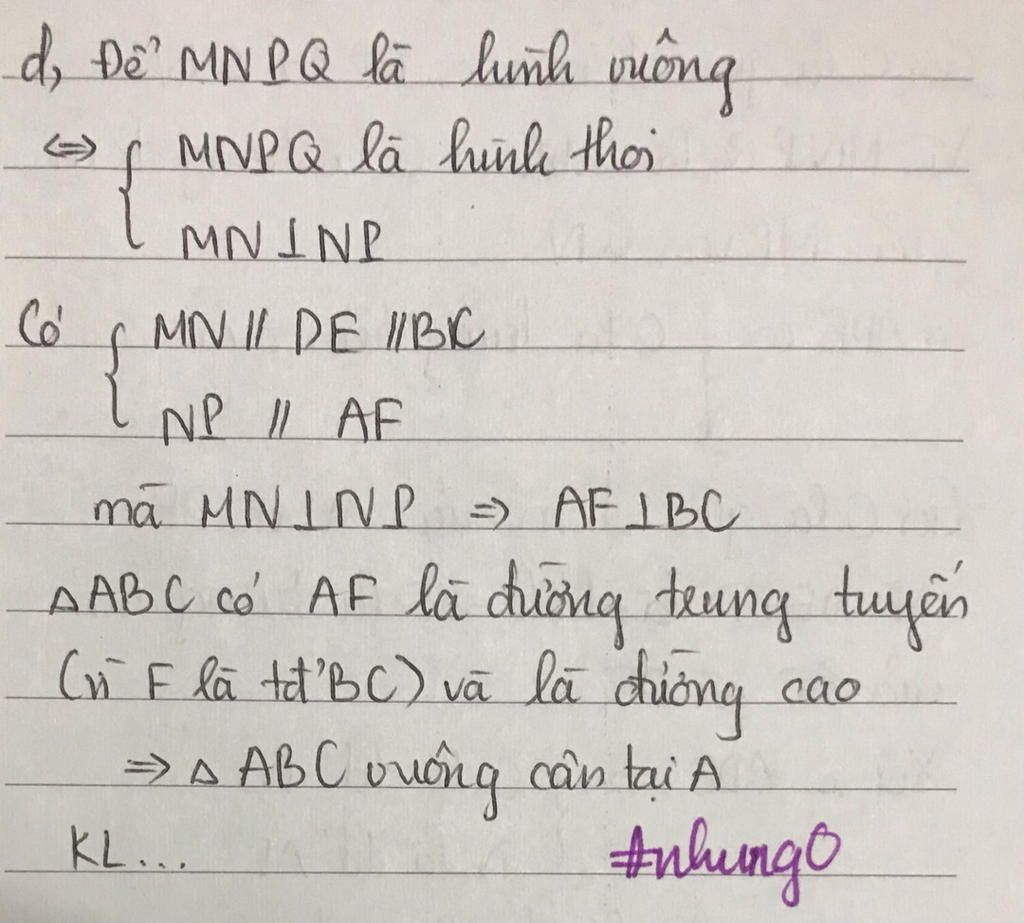 d, Để MNPQ là hình vuông
⇔ { MNPQ là hình thoi
MN ⊥ NP
Có { MN // DE // BC
NP // AF
mà MN ⊥ NP ⇒ AF ⊥ BC
△ABC có AF là đường trung tuyến
(vì F là tđ' BC) và là đường cao
⇒ △ ABC vuông cân tại A
KL...
#nhung0